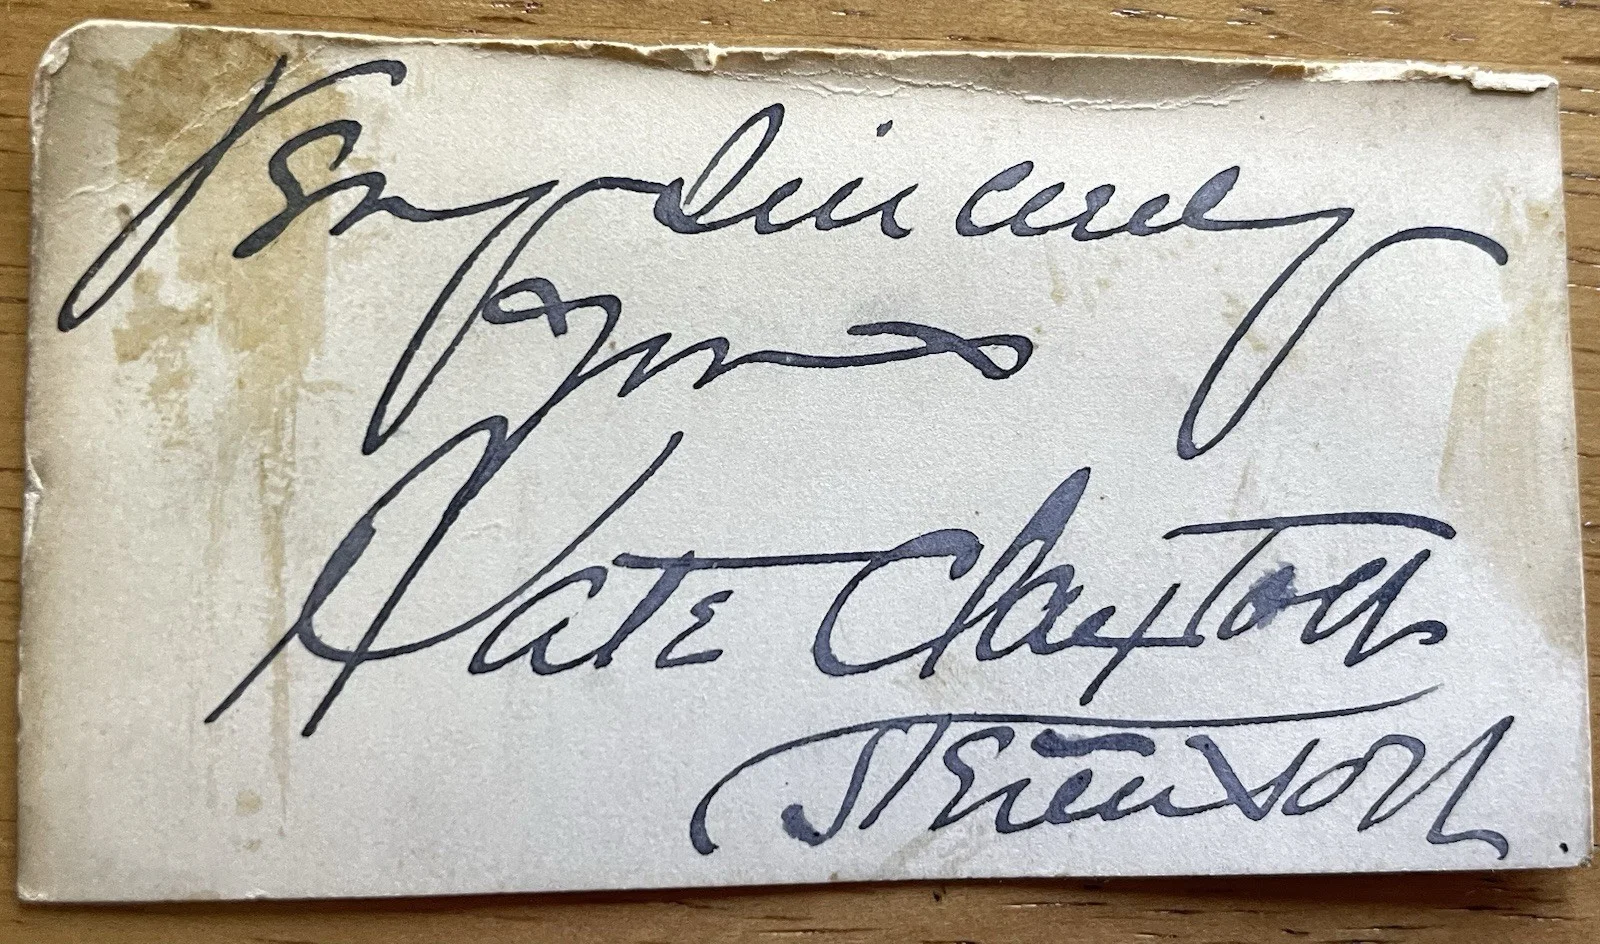 Very Sincerely
Yours
Kate Claxton
Stevenson